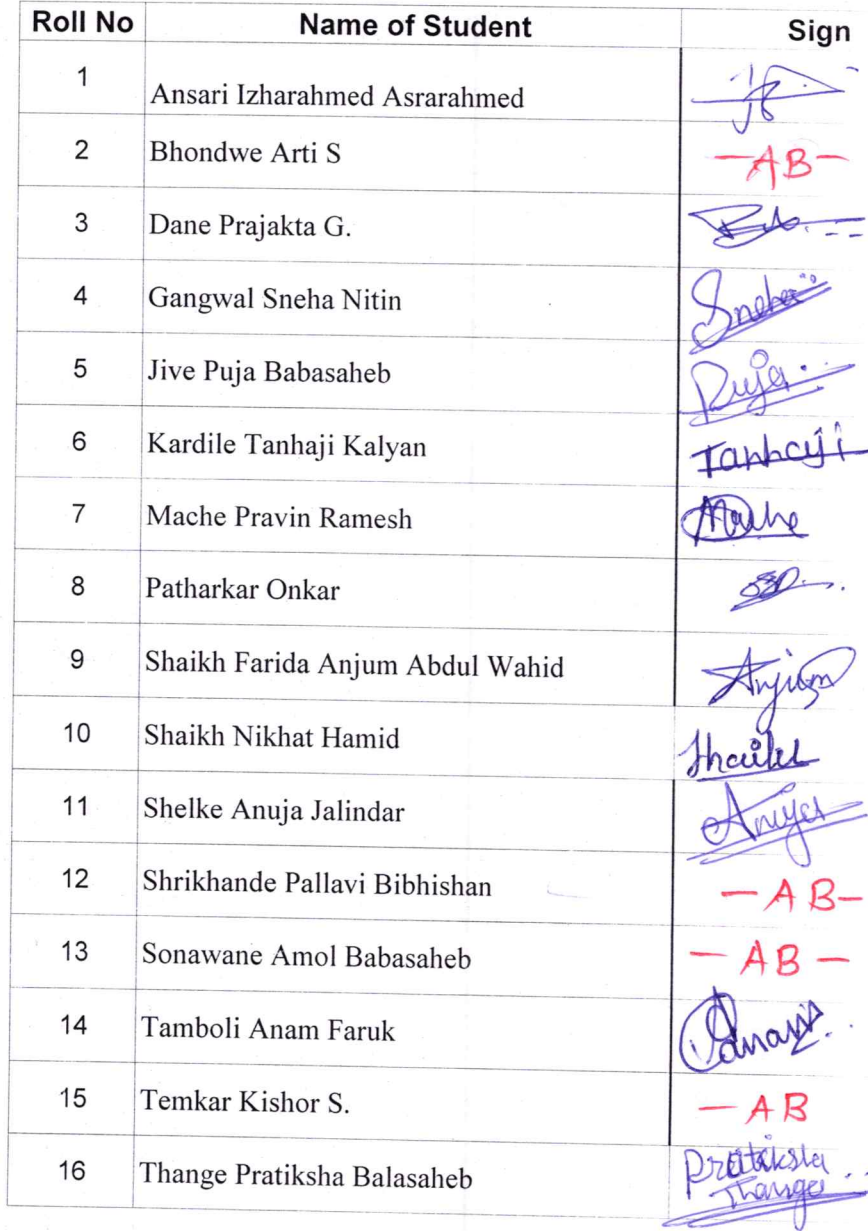 Roll No Name of Student Sign
1 Ansari Izharahmed Asrarahmed
2 Bhondwe Arti S —AB—
3 Dane Prajakta G.
4 Gangwal Sneha Nitin Sneha
5 Jive Puja Babasaheb Puja
6 Kardile Tanhaji Kalyan Tanhaji
7 Mache Pravin Ramesh Mache
8 Patharkar Onkar
9 Shaikh Farida Anjum Abdul Wahid Anjum
10 Shaikh Nikhat Hamid Shaikh
11 Shelke Anuja Jalindar Anuja
12 Shrikhande Pallavi Bibhishan — AB—
13 Sonawane Amol Babasaheb — AB —
14 Tamboli Anam Faruk
15 Temkar Kishor S. — AB
16 Thange Pratiksha Balasaheb Pratiksha
Thange